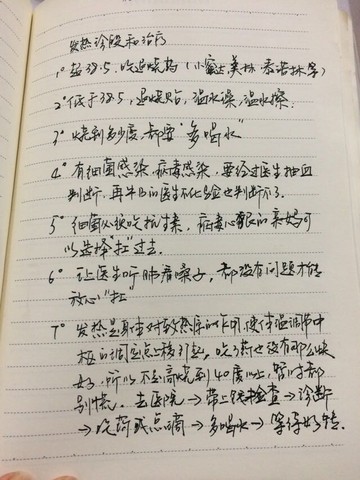 发热诊段和治疗
1° 超38.5.吃退烧药（小蜜蜂 美林 泰诺林等）
2° 低于38.5，退烧贴，温水澡，温水擦.
3° 烧到多少度，都要“多喝水”
4° 有细菌感染，病毒感染，要经过医生抽血
判断，再牛B的医生不化验也判断不了.
5° 细菌必须吃抗生素，病毒心狠的亲妈可
以选择“扛”过去.
6° 让医生听肺看嗓子，都没有问题才能
放心“扛
7° 发热是身体对致热原的作用，使体温调节中
枢的调定点上移引起，吃了药也没有那么快
好，所以不是高烧到40度以上，皆可都
别慌. 去医院→带上 检查→诊断
→吃药或点滴→多喝水→等待好转.